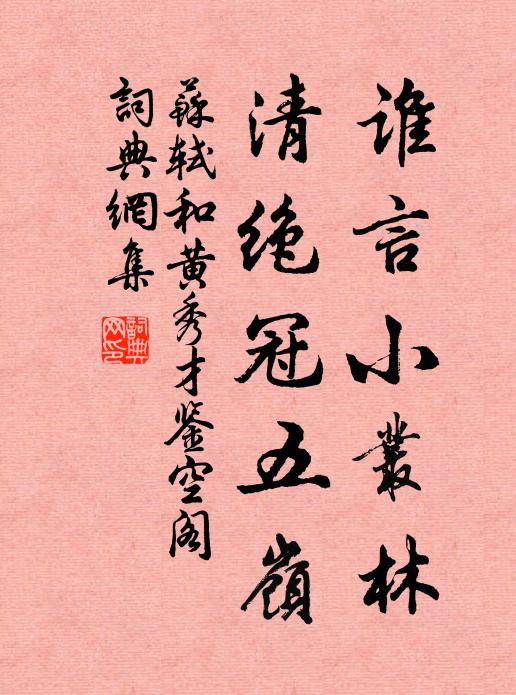 誰言小叢林
清絶冠五嶺
蘇軾和黄秀才鉴空阁
詞典網集
詞典网印